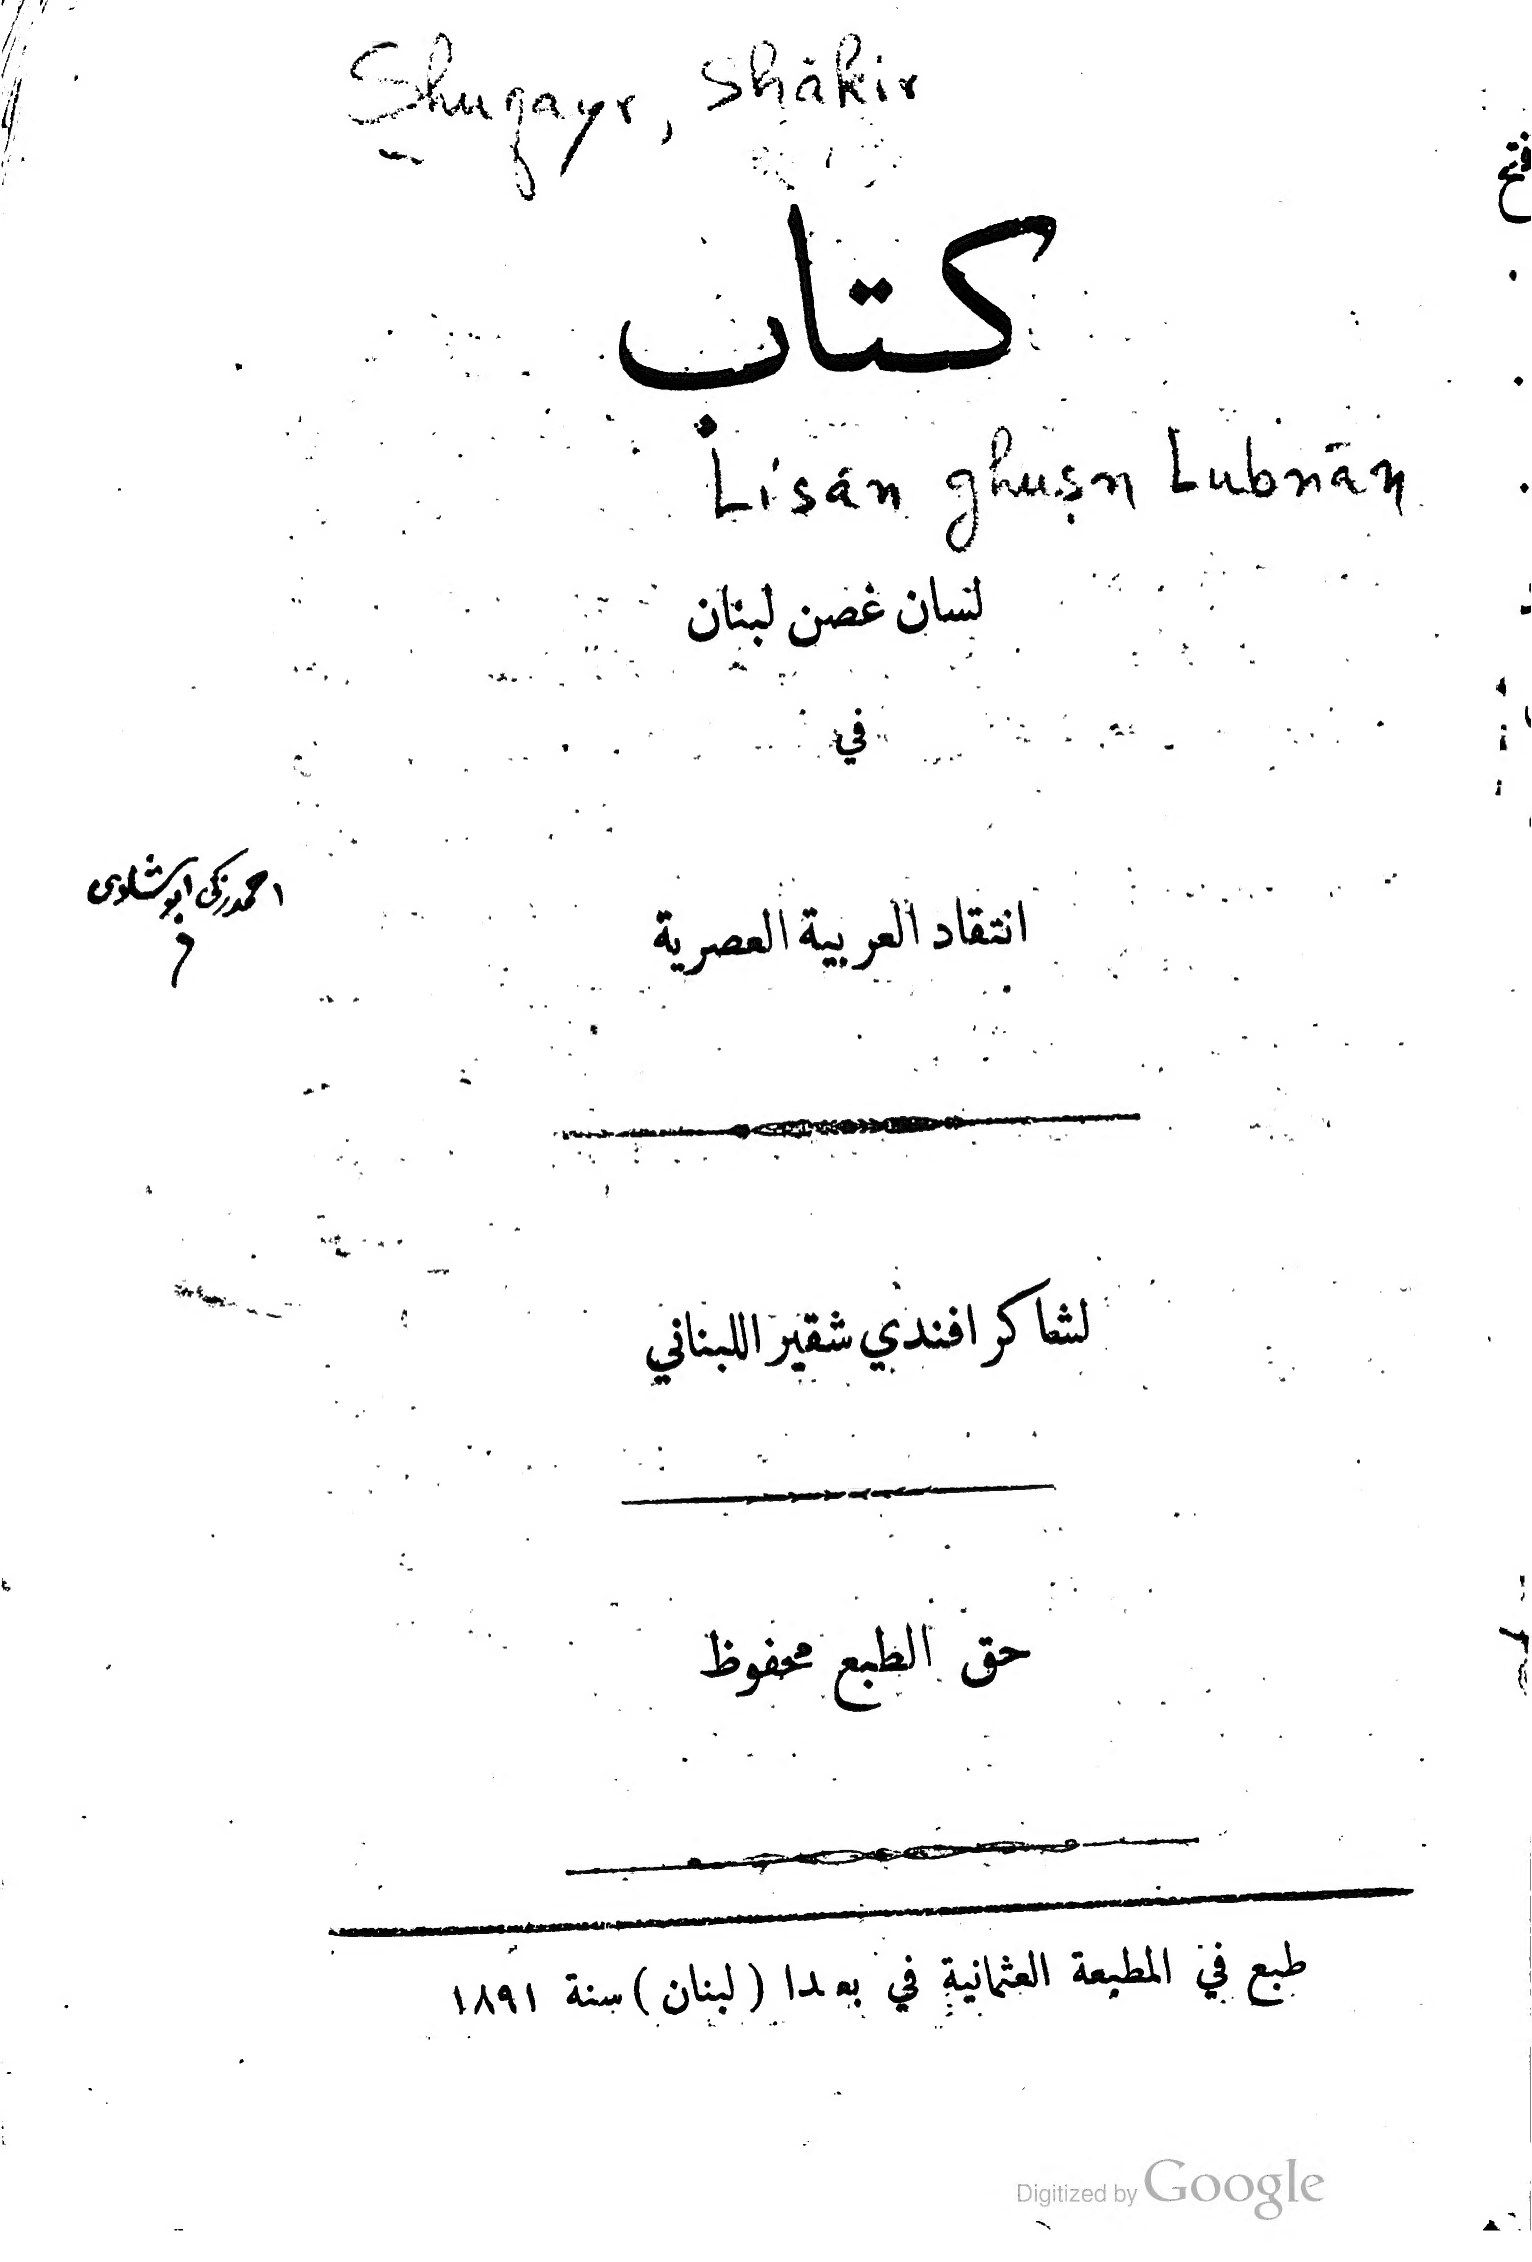 Shuqayr, Shākir
كتاب
Lisān ghuṣn Lubnān
لسان غصن لبنان
في
احمد زكى ابو شادى
انتقاد العربية العصرية
لشاكر افندي شقير اللبناني
حق الطبع محفوظ
طبع في المطبعة العثمانية في بعبدا (لبنان) سنة ١٨٩١
Digitized by Google